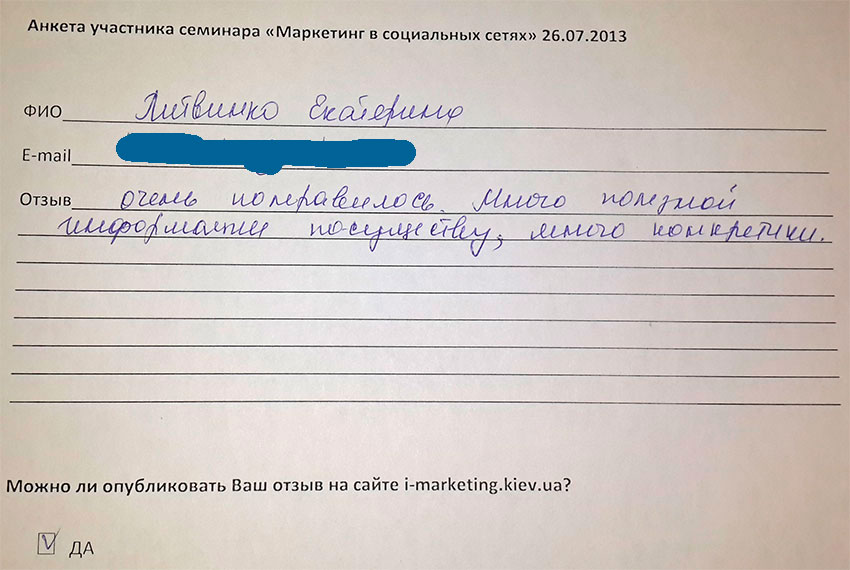 Анкета участника семинара «Маркетинг в социальных сетях» 26.07.2013
ФИО Литвинко Екатерина
E-mail
Отзыв очень понравилось. Много полезной
информации по-существу, много конкретики.
Можно ли опубликовать Ваш отзыв на сайте i-marketing.kiev.ua?
ДА